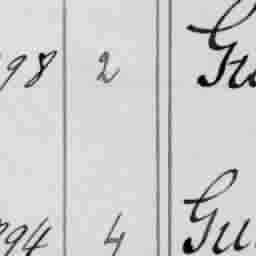 98 2 Gu
94 4 Gu